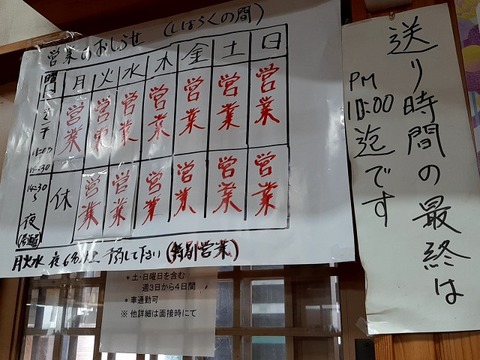 営業のおしらせ (しばらくの間)
曜日 月 火 水 木 金 土 日
営業 営業 営業 営業 営業 営業 営業
夜
休 営業 営業 営業 営業 営業 営業
月火水 夜6名以上 予約して下さい (特別営業)
送り時間の最終は
PM
10:00
迄です
・土・日曜日を含む
週3日から4日間
・車通勤可
※ 他詳細は面接時にて